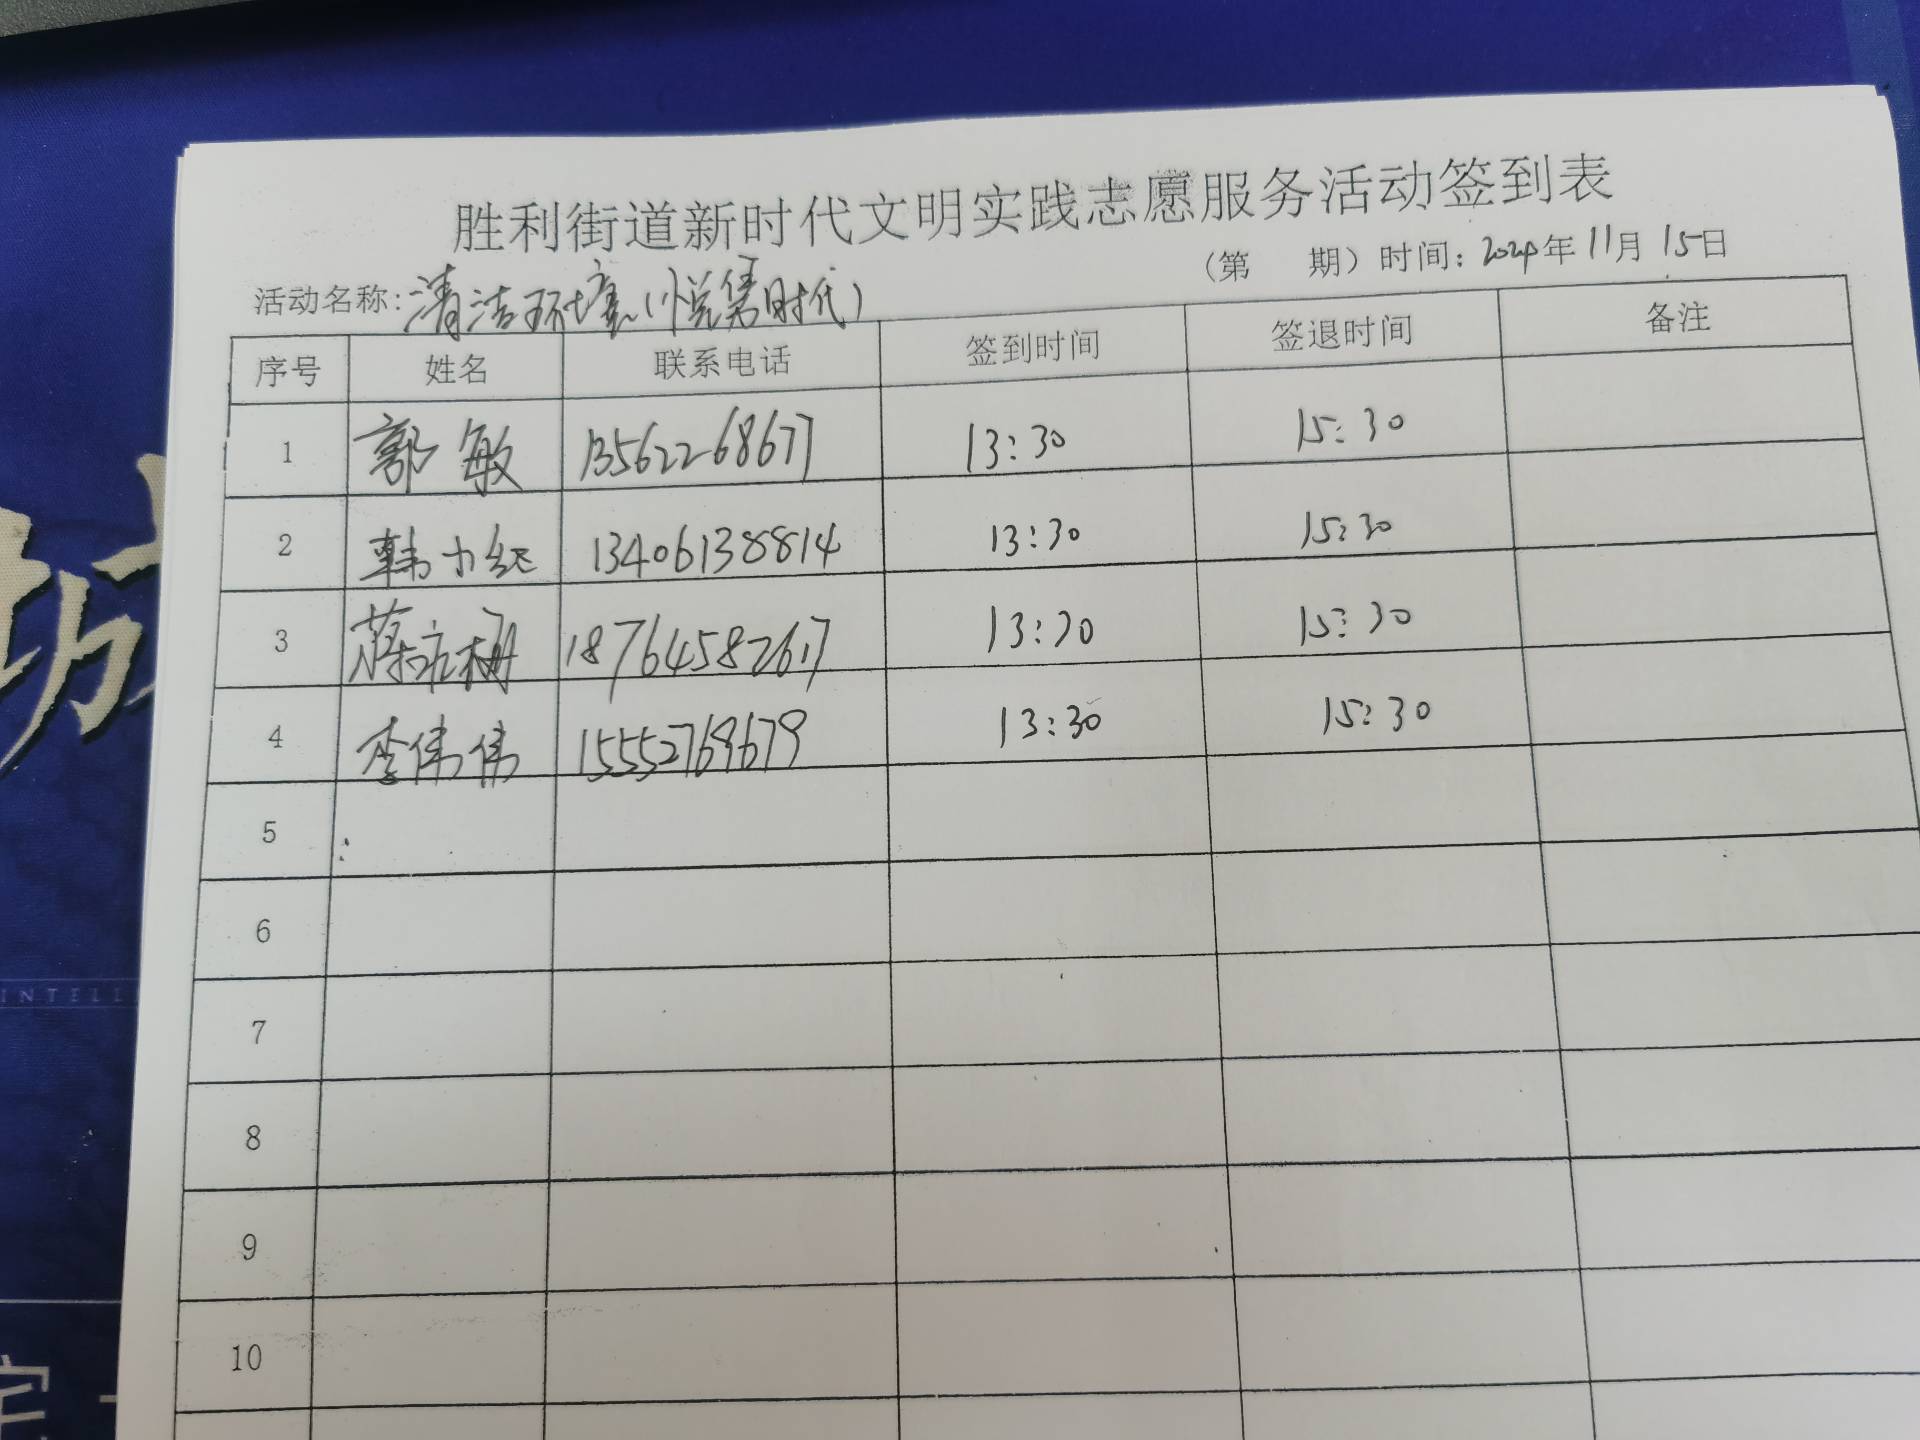 胜利街道新时代文明实践志愿服务活动签到表
(第 期) 时间: 2024年11月15日
活动名称: 清洁环境(悦隽时代)
序号 姓名 联系电话 签到时间 签退时间 备注
1 郭敏 13562268677 13:30 15:30
2 韩小纪 13406138814 13:30 15:30
3 蒋立楠 18764582617 13:30 15:30
4 李伟伟 15552769679 13:30 15:30
5
6
7
8
9
10
INTELL